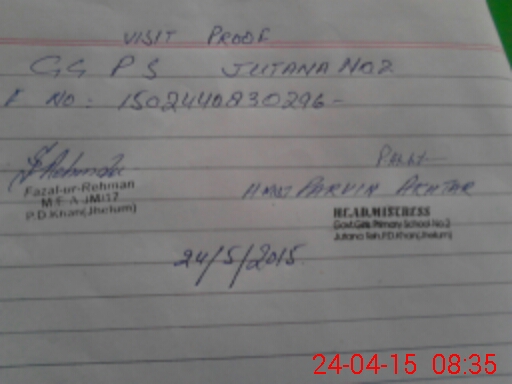 VISIT PROOF
GG PS JUTANA NO.2
NO: 1502440830296-
Fazal-ur-Rehman
M.E.A JM/17
P.D.Khan(Jhelum)
PARVIN AKHTAR
HEAD.MISTRESS
Govt.Girls Primary School No.2
Jutana Teh.P.D.Khan(Jhelum)
24/5/2015
24-04-15 08:35